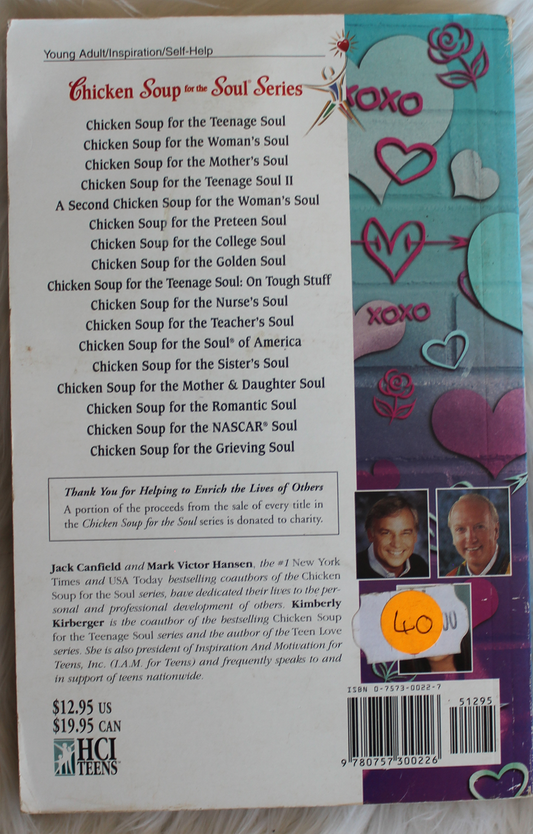 Young Adult/Inspiration/Self-Help
Chicken Soup for the Soul® Series
Chicken Soup for the Teenage Soul
Chicken Soup for the Woman's Soul
Chicken Soup for the Mother's Soul
Chicken Soup for the Teenage Soul II
A Second Chicken Soup for the Woman's Soul
Chicken Soup for the Preteen Soul
Chicken Soup for the College Soul
Chicken Soup for the Golden Soul
Chicken Soup for the Teenage Soul: On Tough Stuff
Chicken Soup for the Nurse's Soul
Chicken Soup for the Teacher's Soul
Chicken Soup for the Soul® of America
Chicken Soup for the Sister's Soul
Chicken Soup for the Mother & Daughter Soul
Chicken Soup for the Romantic Soul
Chicken Soup for the NASCAR® Soul
Chicken Soup for the Grieving Soul
Thank You for Helping to Enrich the Lives of Others
A portion of the proceeds from the sale of every title in
the Chicken Soup for the Soul series is donated to charity.
Jack Canfield and Mark Victor Hansen, the #1 New York
Times and USA Today bestselling coauthors of the Chicken
Soup for the Soul series, have dedicated their lives to the per-
sonal and professional development of others. Kimberly
Kirberger is the coauthor of the bestselling Chicken Soup
for the Teenage Soul series and the author of the Teen Love
series. She is also president of Inspiration And Motivation for
Teens, Inc. (I.A.M. for Teens) and frequently speaks to and
in support of teens nationwide.
$12.95 US
$19.95 CAN
HCI
TEENS™
XOXO
XOXO
40
ISBN 0-7573-0022-7
51295
9 780757 300226